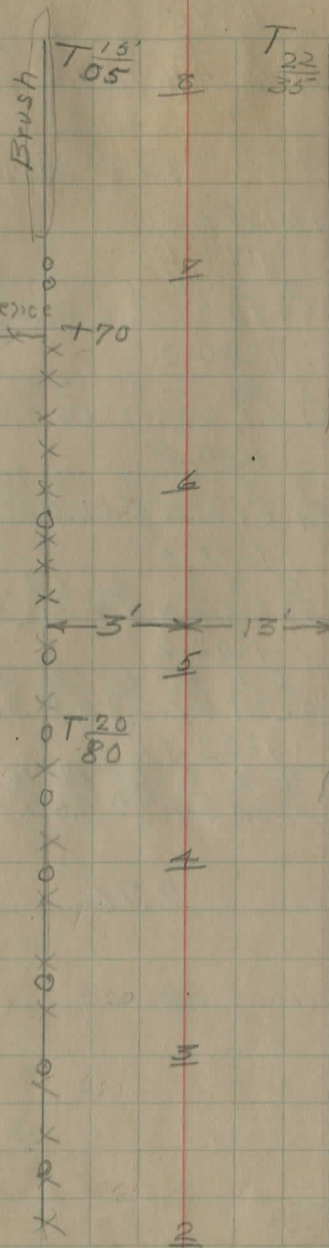 Brush
T 15' / 05
8
T 22 / 35
7
+70
6
3'
13'
5
T 20 / 80
4
3
2